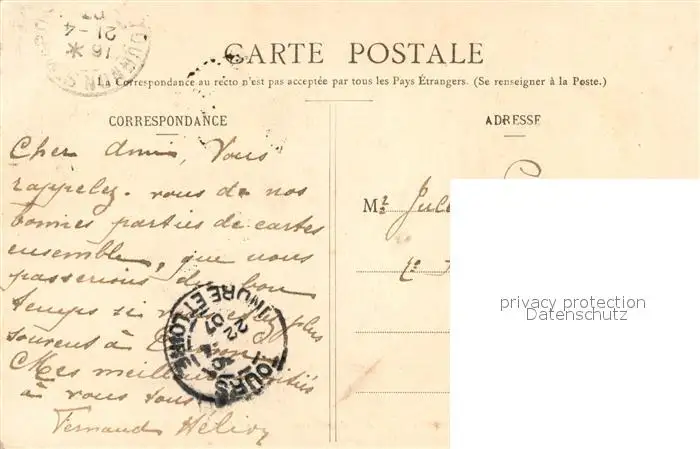 TOURNON-S
16 *
21-4
07
CARTE POSTALE
La Correspondance au recto n'est pas acceptée par tous les Pays Étrangers. (Se renseigner à la Poste.)
CORRESPONDANCE
ADRESSE
Cher Ami, Vous
rappelez-vous de nos
bonnes parties de cartes
ensemble, que nous
passerions du bon
temps si plus
souvent à
Mes amitiés
à vous tous
Fernand
M
TOURS
INDRE ET LOIRE
22
07
privacy protection
Datenschutz